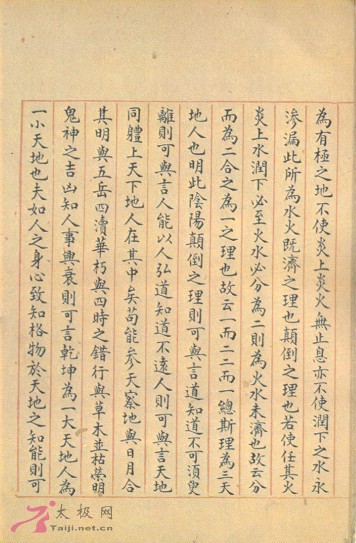 為有極之地不使炎上炎火無止息亦不使潤下之水永
滲漏此所為水火既濟之理也顛倒之理也若使任其火
炎上水潤下必至火水必分為二則為火水未濟也故云分
而為二合之為一之理也故云一而二二而一總斯理為三天
地人也明此陰陽顛倒之理則可與言道知道不可須臾
離則可與言人能以人弘道知道不遠人則可與言天地
同體上天下地人在其中矣苟能參天察地與日月合
其明與五岳四瀆華朽與四時之錯行與草木並枯榮明
鬼神之吉凶知人事興衰則可言乾坤為一大天地人為
一小天地也夫如人之身心致知格物於天地之知能則可
太极网
Taiji.net.cn